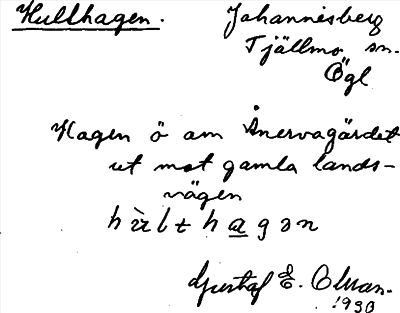 Hullhagen. Johannisberg
Tjällmo sn.
Ögl
Hagen ö om Ånervagärdet
ut mot gamla lands-
vägen
Gustaf E.
1930